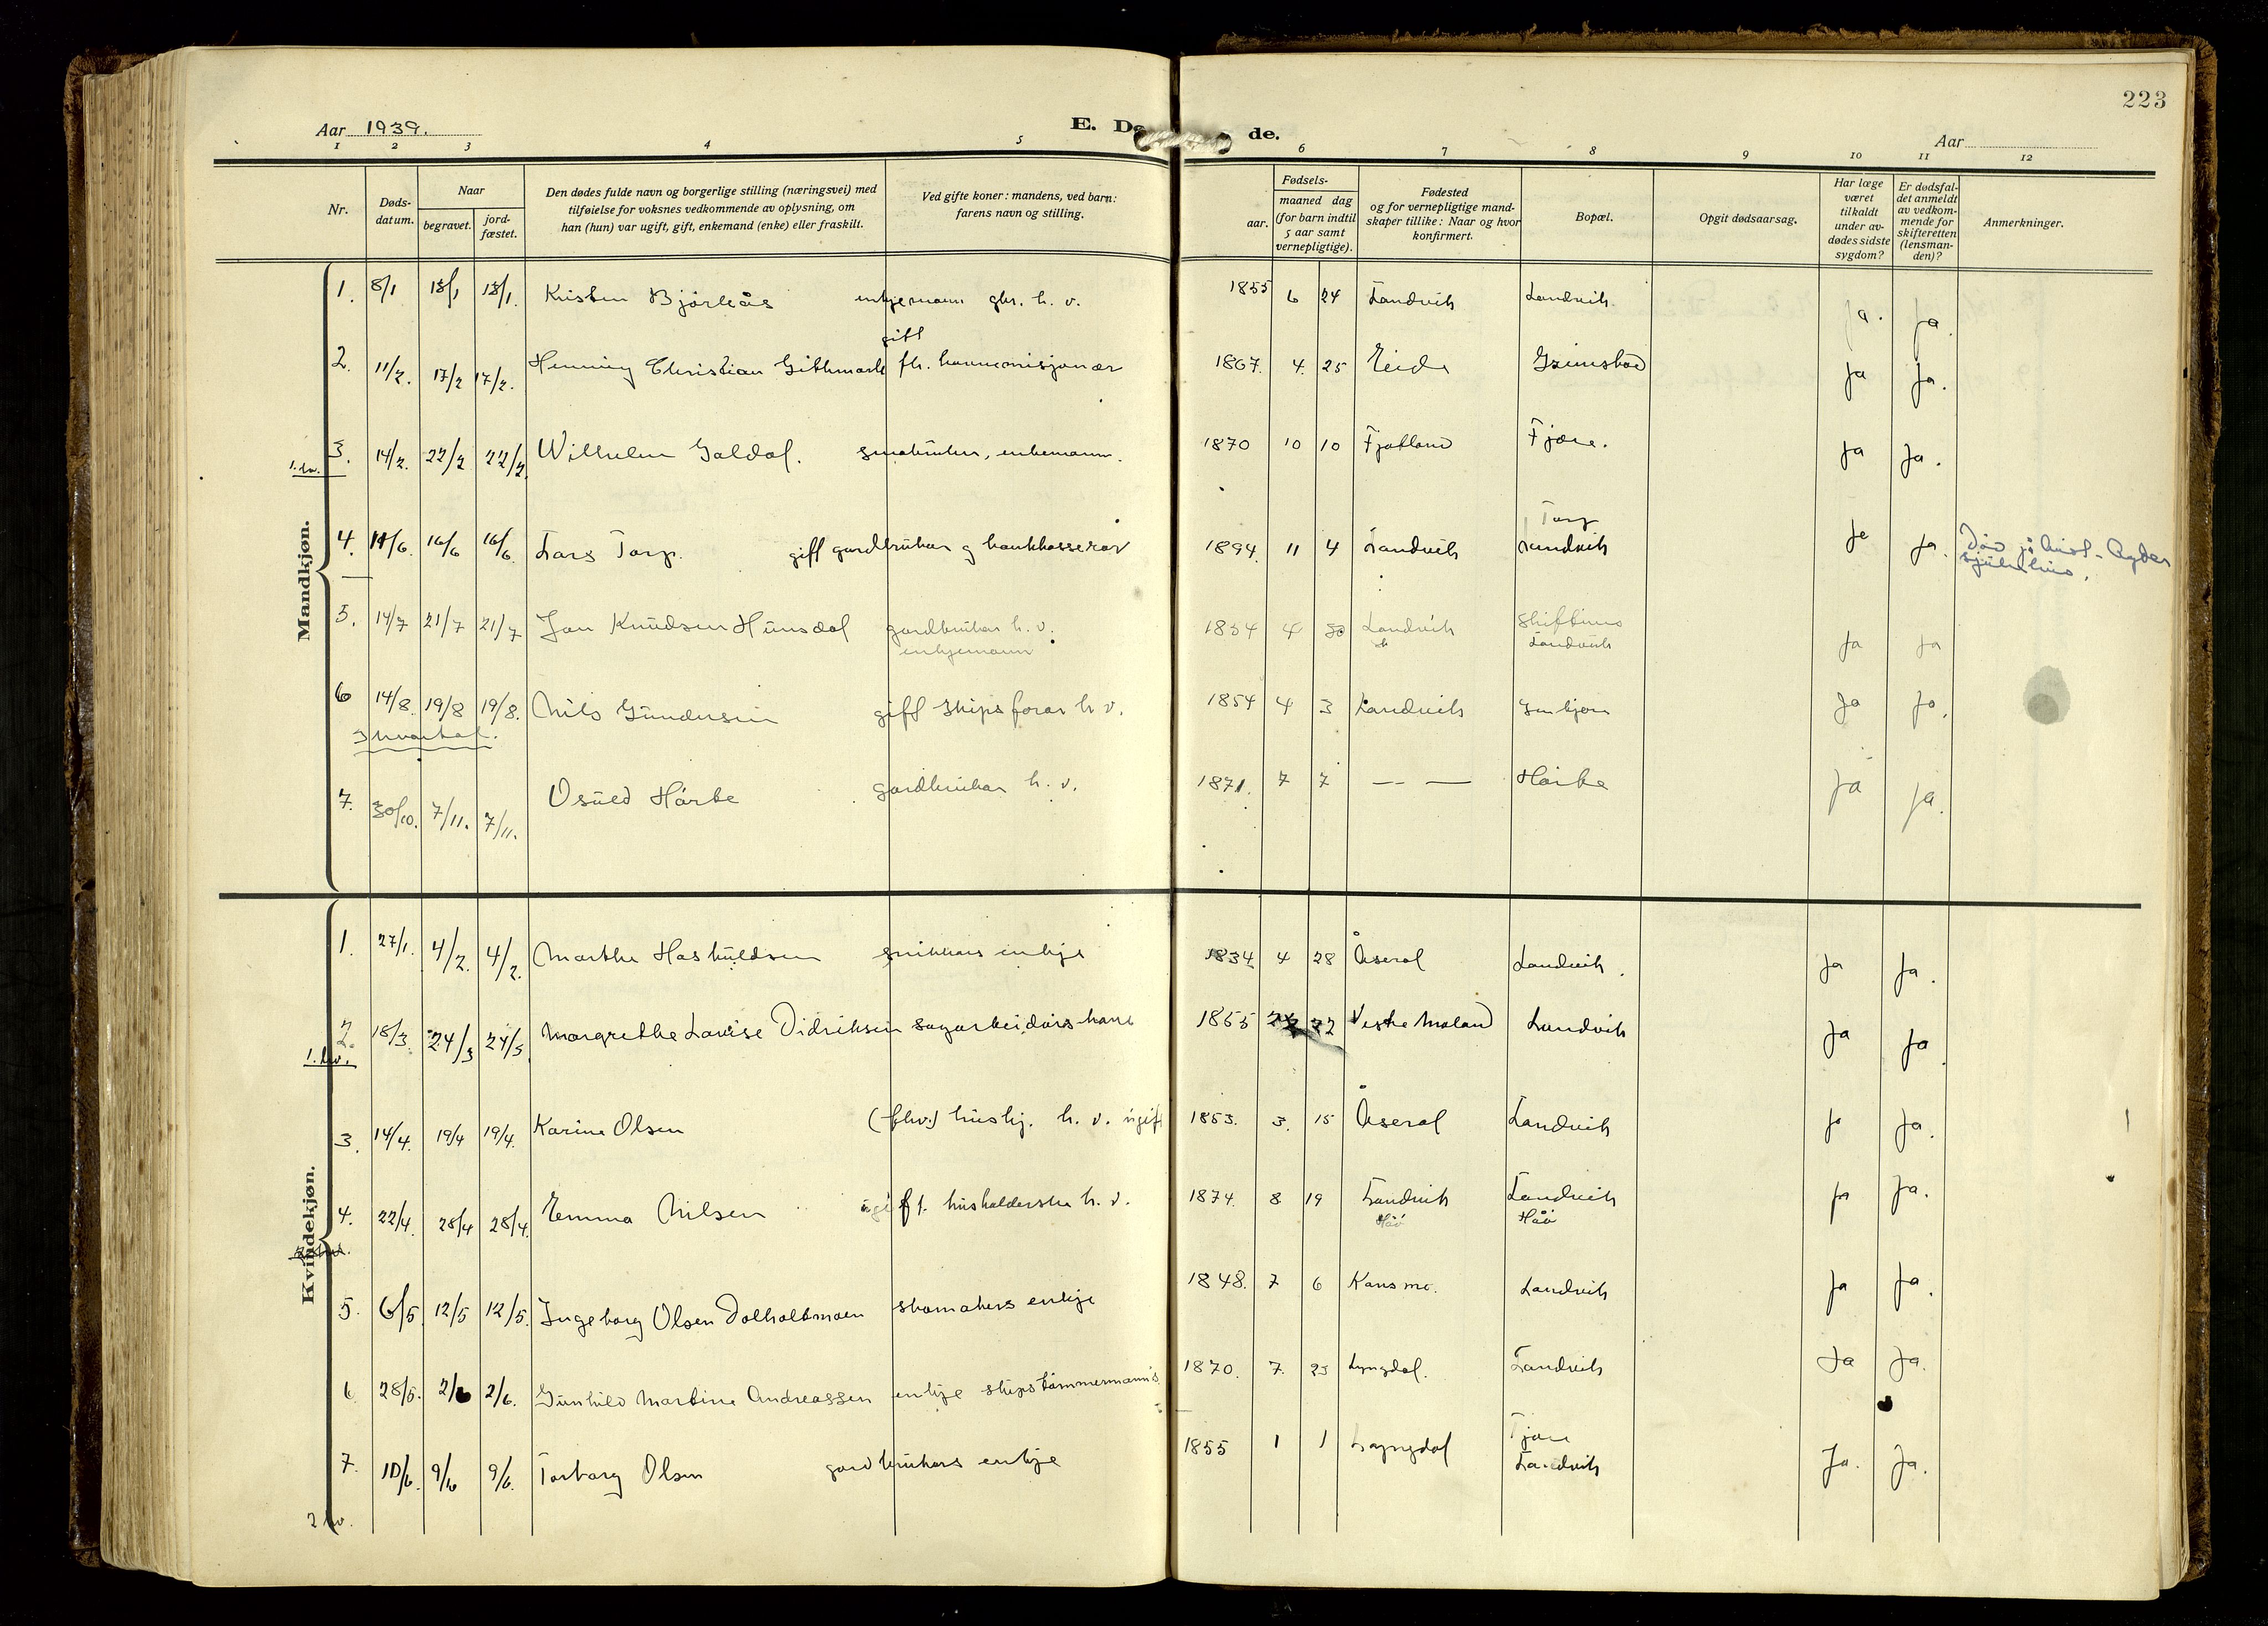 223
Aar 1939.
E. Dø
de.
Aar
1 2 3 4 5 6 7 8 9 10 11 12
Nr.
Døds-
datum.
Naar
begravet.
jord-
fæstet.
Den dødes fulde navn og borgerlige stilling (næringsvei) med
tilføielse for voksnes vedkommende av oplysning, om
han (hun) var ugift, gift, enkemand (enke) eller fraskilt.
Ved gifte koner: mandens, ved barn:
farens navn og stilling.
Fødsels-
aar.
maaned dag
(for barn indtil
5 aar samt
vernepligtige).
Fødested
og for vernepligtige mand-
skaper tillike: Naar og hvor
konfirmert.
Bopæl.
Opgit dødsaarsag.
Har læge
været
tilkaldt
under av-
dødes sidste
sygdom?
Er dødsfal-
det anmeldt
av vedkom-
mende for
skifteretten
(lensman-
den)?
Anmerkninger.
Mandkjøn.
1. 8/1 13/1 13/1. Kristen Bjørkås enkjemann gbr. h. v. 1855 6 24 Landvik Landvik ja. ja.
gift
2. 11/2. 17/2 17/2. Henning Christian Githmark fh. 1867. 4. 25 Eide Grimstad ja ja.
3. 14/2. 22/2 22/2. Wilhelm Galdal. småbruker, enkemann. 1870 10 10 Fjotland Fjære. ja ja.
1. kv.
Torp
4. 14/6. 16/6 16/6. Lars Torp. gift gardbruker og bankkasserar 1894. 11 4 Landvik Landvik ja ja. Død på Aust-Agder
sjukehus.
5. 14/7 21/7 21/7 Jon Knudsen Hunsdal gardbruker h. v. 1854 4 Landvik Skiftenes
enkjemann Landvik ja ja
6 14/8. 19/8 19/8. Nils Gundersen gift skipsførar h v. 1854 4 3 Landvik ja ja.
3 kvartal.
7. 30/10. 7/11. 7/11. Osuld Hørte gardbrukar h. v. 1871. 7 7 — — Hørte ja ja.
Kvindekjøn.
1. 27/1. 4/2. 4/2. Marthe Haskuldsen snikkars enkje 1834 4 28 Åseral Landvik. ja ja.
2. 18/3. 24/3 24/3. Margrethe Lovise Didriksen sagarbeidars kone 1855 22 Vestre Moland Landvik ja ja.
1. kv.
3. 14/4. 19/4 19/4. Karine Olsen (fhv.) hushj. h. v. ugift 1853. 3. 15 Åseral Landvik ja ja.
4. 22/4. 28/4 28/4. Emma Nilsen ugift f. husholderske h. v. 1874. 8 19 Landvik Landvik ja ja.
Håø Håø
5. 6/5. 12/5 12/5. Ingeborg Olsen Dalholtmoen skomakers enkje 1848. 7 6 Landvik ja ja.
6 28/5. 2/6 2/6. Gunhild Martine Andreassen enkje skipstømmermanns 1870. 7. 23 Lyngdal. Landvik ja ja.
Fjære
7. 10/6. 9/6 9/6. Torborg Olsen gardbrukers enkje 1855 1 1 Lyngdal Landvik Ja. Ja.
2 kv.